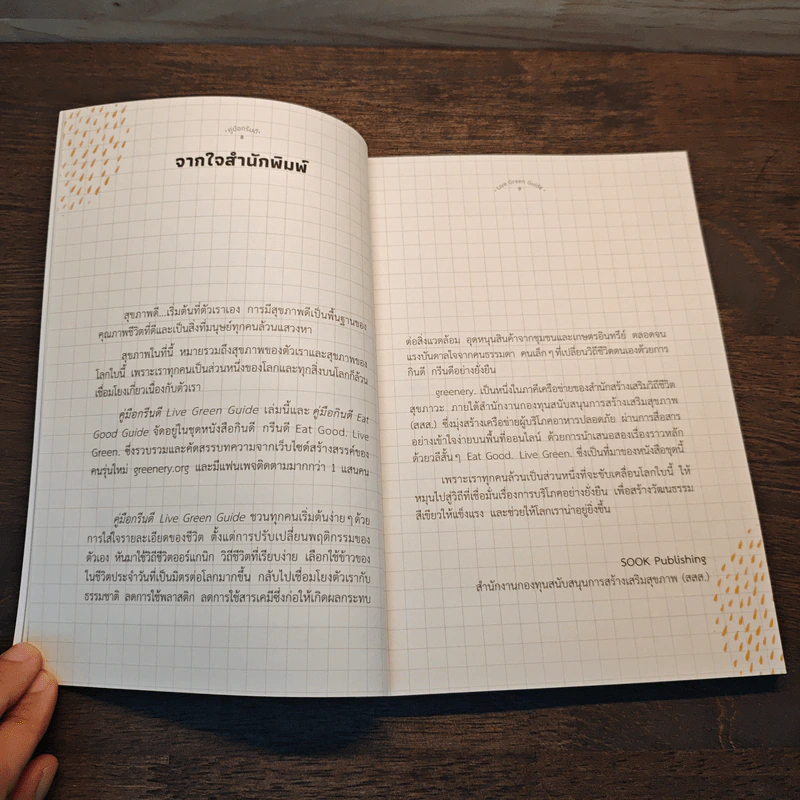 คู่มือกรีนดี
จากใจสำนักพิมพ์
สุขภาพดี...เริ่มต้นที่ตัวเราเอง การมีสุขภาพดีเป็นพื้นฐานของ
คุณภาพชีวิตที่ดีและเป็นสิ่งที่มนุษย์ทุกคนล้วนแสวงหา
สุขภาพในที่นี้ หมายรวมถึงสุขภาพของตัวเราและสุขภาพของ
โลกใบนี้ เพราะเราทุกคนเป็นส่วนหนึ่งของโลกและทุกสิ่งบนโลกก็ล้วน
เชื่อมโยงเกี่ยวเนื่องกับตัวเรา
คู่มือกรีนดี Live Green Guide เล่มนี้และ คู่มือกินดี Eat
Good Guide จัดอยู่ในชุดหนังสือกินดี กรีนดี Eat Good. Live
Green. ซึ่งรวบรวมและคัดสรรบทความจากเว็บไซต์สร้างสรรค์ของ
คนรุ่นใหม่ greenery.org และมีแฟนเพจติดตามมากกว่า 1 แสนคน
คู่มือกรีนดี Live Green Guide ชวนทุกคนเริ่มต้นง่ายๆ ด้วย
การใส่ใจรายละเอียดของชีวิต ตั้งแต่การปรับเปลี่ยนพฤติกรรมของ
ตัวเอง หันมาใช้วิถีชีวิตออร์แกนิก วิถีชีวิตที่เรียบง่าย เลือกใช้ข้าวของ
ในชีวิตประจำวันที่เป็นมิตรต่อโลกมากขึ้น กลับไปเชื่อมโยงตัวเรากับ
ธรรมชาติ ลดการใช้พลาสติก ลดการใช้สารเคมีซึ่งก่อให้เกิดผลกระทบ
Live Green Guide
ต่อสิ่งแวดล้อม อุดหนุนสินค้าจากชุมชนและเกษตรอินทรีย์ ตลอดจน
แรงบันดาลใจจากคนธรรมดา คนเล็กๆ ที่เปลี่ยนวิถีชีวิตตนเองด้วยการ
กินดี กรีนดีอย่างยั่งยืน
greenery. เป็นหนึ่งในภาคีเครือข่ายของสำนักสร้างเสริมวิถีชีวิต
สุขภาวะ ภายใต้สำนักงานกองทุนสนับสนุนการสร้างเสริมสุขภาพ
(สสส.) ซึ่งมุ่งสร้างเครือข่ายผู้บริโภคอาหารปลอดภัย ผ่านการสื่อสาร
อย่างเข้าใจง่ายบนพื้นที่ออนไลน์ ด้วยการนำเสนอสองเรื่องราวหลัก
ด้วยวลีสั้นๆ Eat Good. Live Green. ซึ่งเป็นที่มาของหนังสือชุดนี้
เพราะเราทุกคนล้วนเป็นส่วนหนึ่งที่จะขับเคลื่อนโลกใบนี้ ให้
หมุนไปสู่วิถีที่เชื่อมั่นเรื่องการบริโภคอย่างยั่งยืน เพื่อสร้างวัฒนธรรม
สีเขียวให้แข็งแรง และช่วยให้โลกเราน่าอยู่ยิ่งขึ้น
SOOK Publishing
สำนักงานกองทุนสนับสนุนการสร้างเสริมสุขภาพ (สสส.)